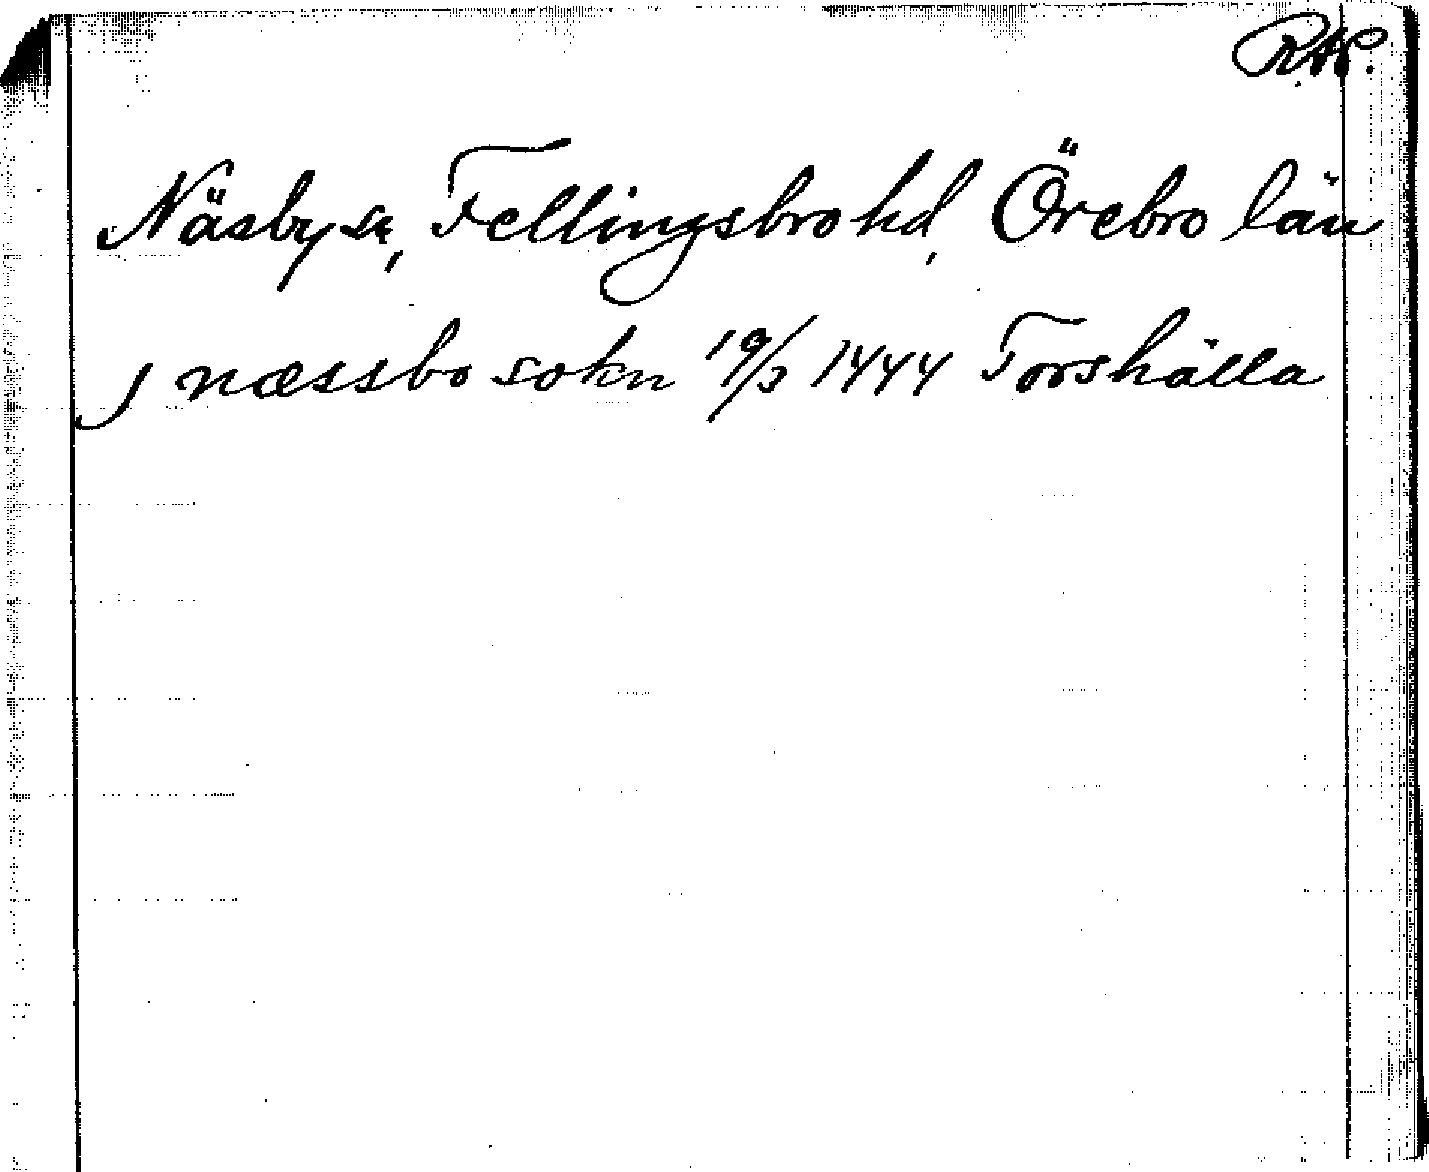 RAP.
Näsby sn, Fellingsbro hd, Örebro län
j næssbo sokn 19/3 1444 Torshälla